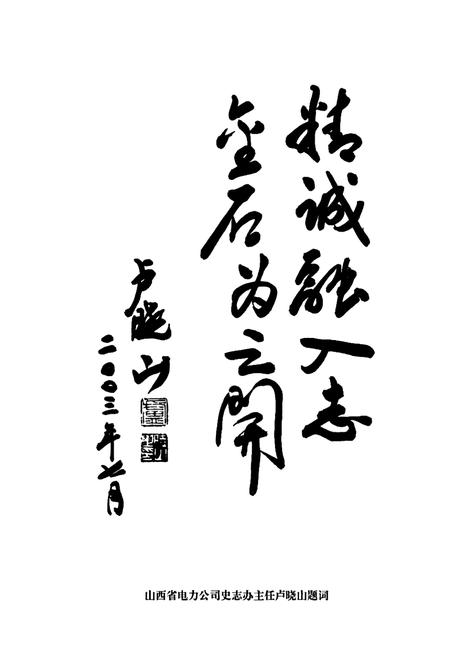 精诚融入志
金石为之開
卢晓山
二〇〇三年七月
山西省电力公司史志办主任卢晓山题词